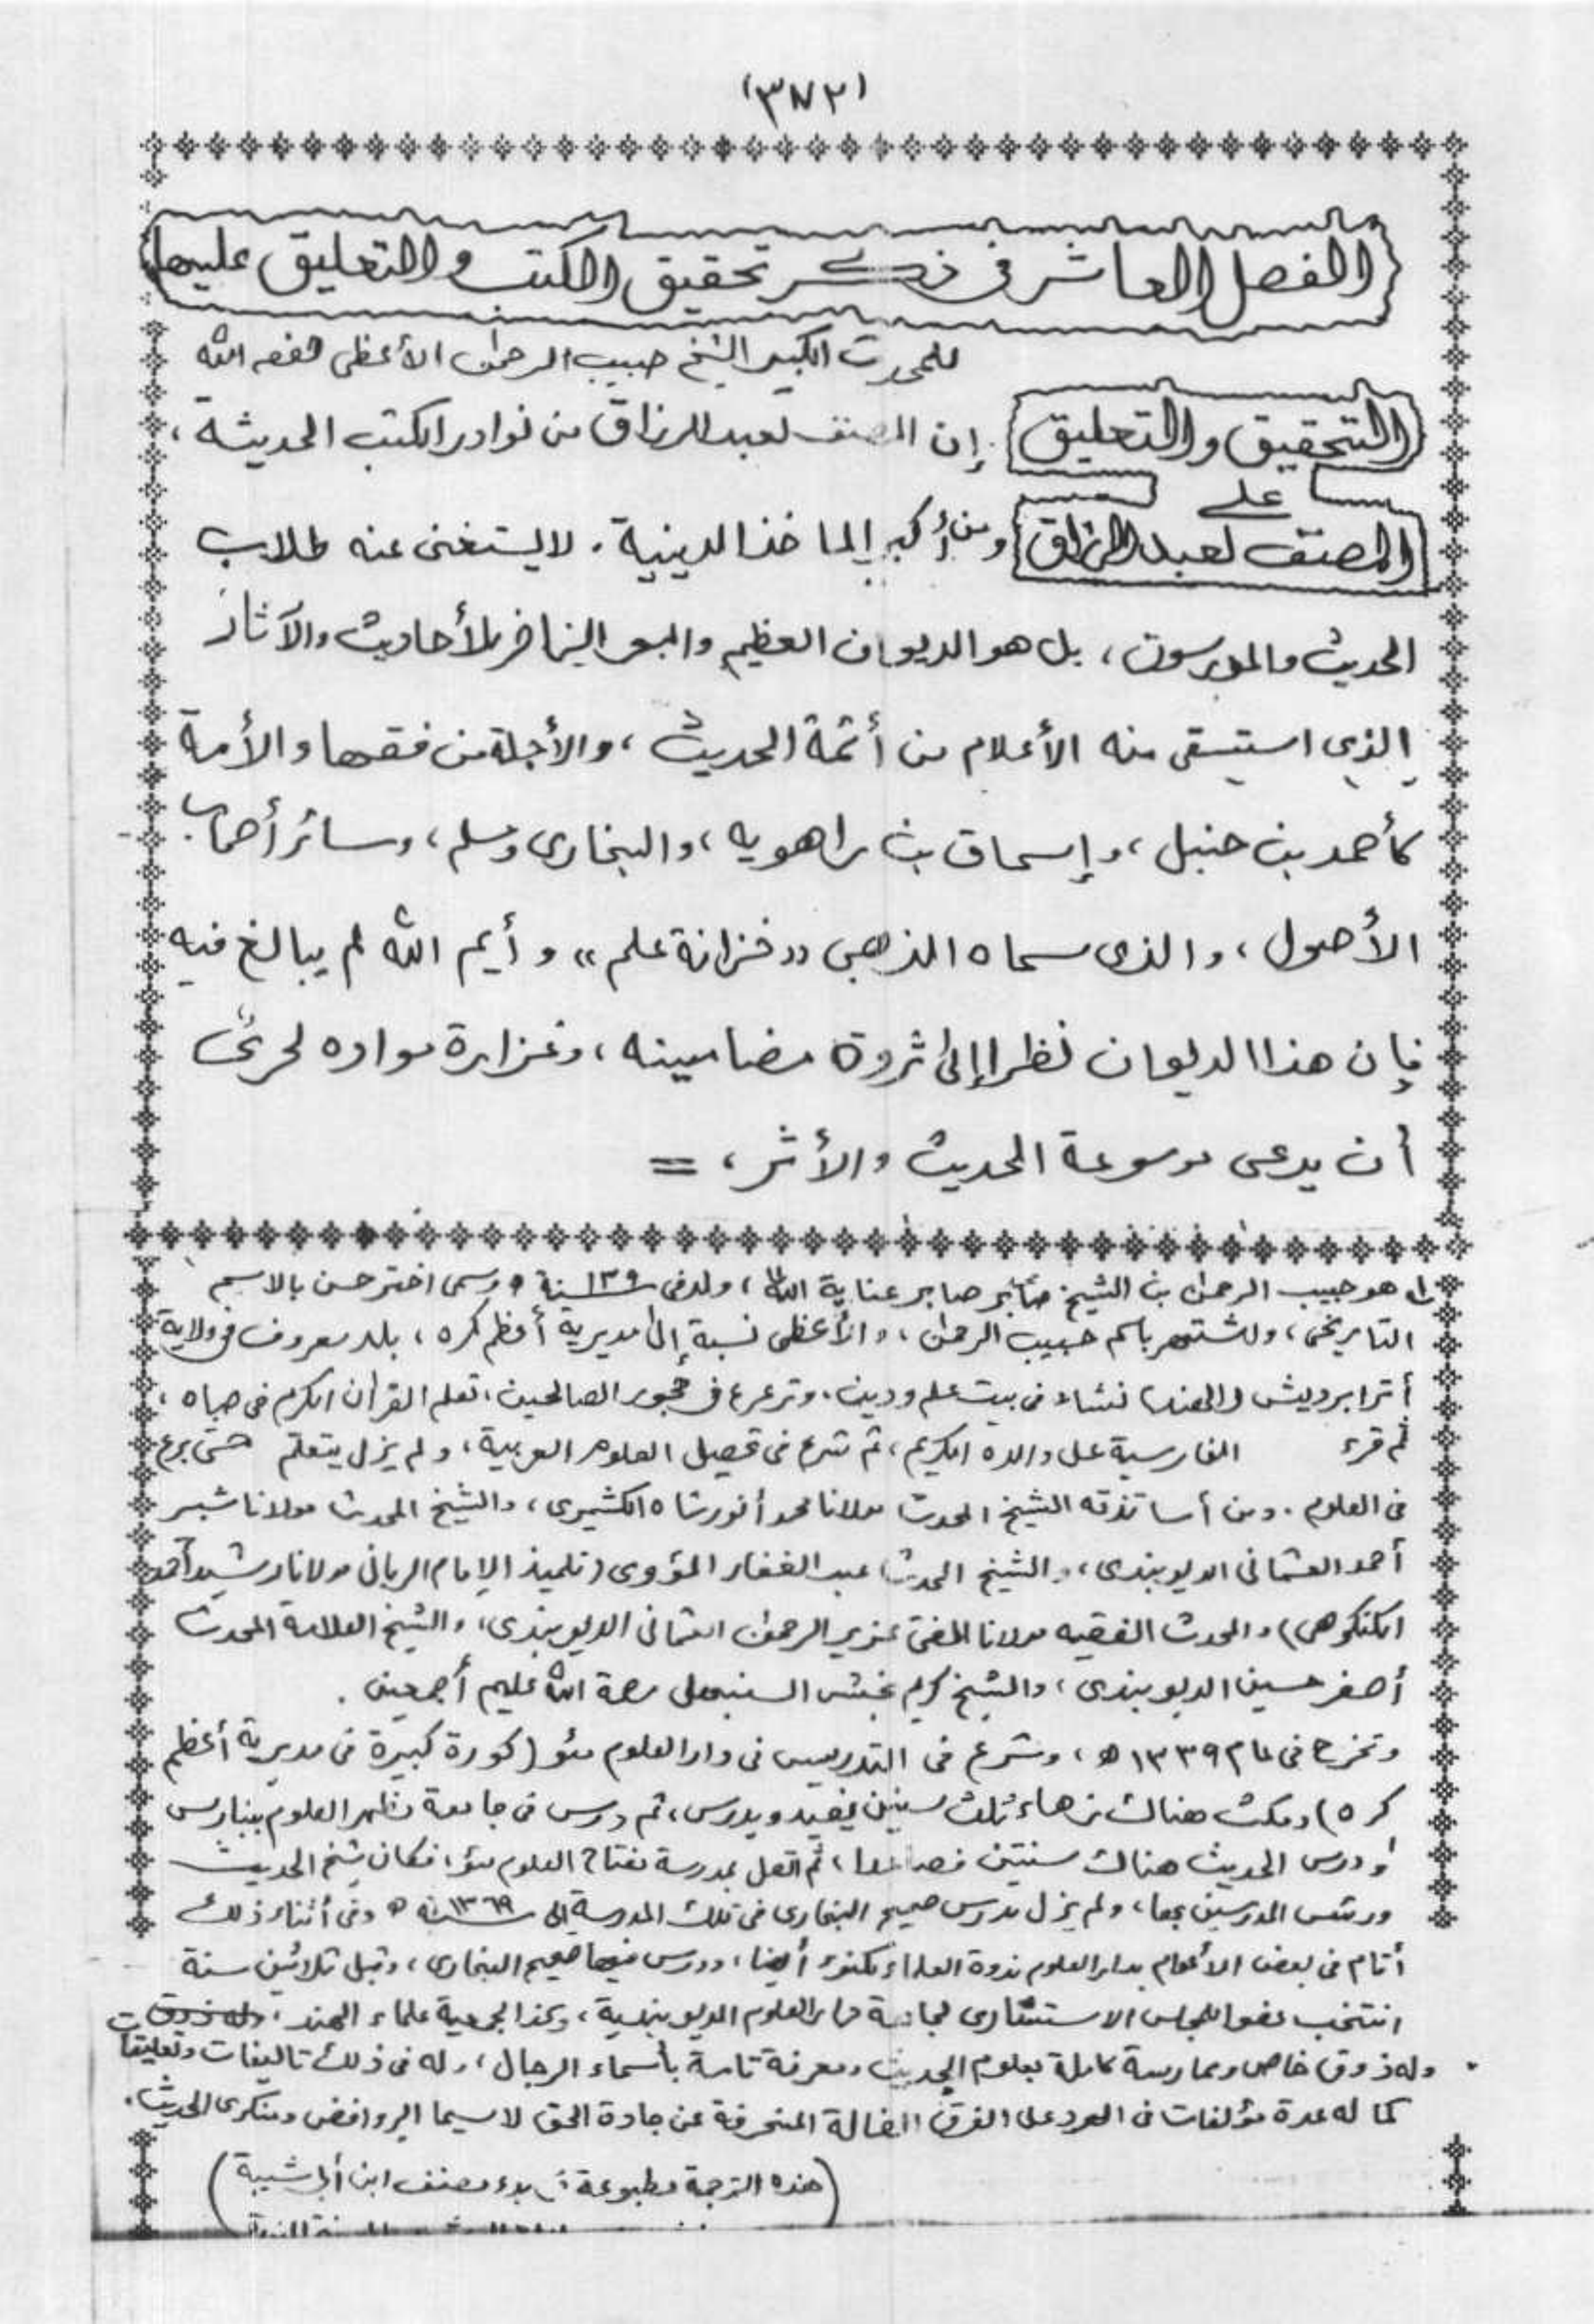 (٣٨٢)
الفصل العاشر فى ذكر تحقيق الكتب والتعليق عليها
للمحدث الكبير الشيخ حبيب الرحمن الأعظمى حفظه الله
التحقيق والتعليق إن المصنف لعبد الرزاق من نوادر الكتب الحديثة ،
على
المصنف لعبد الرزاق ومن أكبر المآخذ الدينية . لا يستغنى عنه طلاب
الحديث والمدرسون ، بل هو الديوان العظيم والبحر الزاخر للأحاديث والآثار
الذى استسقى منه الأعلام من أئمة الحديث ، والأجلة من فقهاء الأمة
كأحمد بن حنبل ، وإسحاق بن راهويه ، والبخارى ومسلم ، وسائر أصحاب
الأصول ، والذى سماه الذهبى ,, خزانة علم ،، وأيم الله لم يبالغ فيه
فإن هذا الديوان نظرا إلى ثروة مضامينه ، وغزارة مواده لحرىّ
أن يدعى موسوعة الحديث والأثر ، =
هو حبيب الرحمن بن الشيخ صابر عناية الله ، ولد فى سنة وسمى اختر حسن بالاسم
التاريخى ، واشتهر باسم حبيب الرحمن ، والأعظمى نسبة إلى مديرية أعظم كره ، بلد معروف فى ولاية
أترابرديش (الهند) نشاء فى بيت علم ودين . وترعرع فى حجور الصالحين ، تعلم القران الكريم فى صباه ،
ثم قرء الفارسية على والده الكريم ، ثم شرع فى تحصيل العلوم العربية ، ولم يزل يتعلم حتى برع
فى العلوم . ومن أساتذته الشيخ المحدث مولانا محمد أنور شاه الكشميرى ، والشيخ المحدث مولانا شبير
أحمد العثمانى الديوبندى ، والشيخ المحدث عبد الغفار المؤوى (تلميذ الإمام الربانى مولانا رشيد أحمد
الكنكوهى) والمحدث الفقيه مولانا المفتى عزيز الرحمن العثمانى الديوبندى ، والشيخ العلامة المحدث
أصغر حسين الديوبندى ، والشيخ كريم بخش السنبهلى رحمة الله عليهم أجمعين .
وتخرج فى عام ١٣٣٩ ه ، وشرع فى التدريس فى دار العلوم مئو (كورة كبيرة فى مديرية أعظم
كره) ومكث هناك زهاء ثلث سنين يفيد ويدرس ، ثم درس فى جامعة مظهر العلوم ببنارس
ودرس الحديث هناك سنتين فصاعدا ، ثم اتصل بمدرسة مفتاح العلوم مئو ، فكان شيخ الحديث
ورئيس المدرسين بها ، ولم يزل يدرس صحيح البخارى فى تلك المدرسة إلى سنة ١٣٦٩ ه وفى أثناء ذلك
أقام فى بعض الأعوام بدار العلوم ندوة العلماء لكنوء أيضا ، ودرس فيها صحيح البخارى ، وقبل ثلاثين سنة
انتخب عضوا للمجلس الاستشارى لجامعة دار العلوم الديوبندية ، وكذا لجمعية علماء الهند ، وله ذوق
وله ذوق خاص وممارسة كاملة بعلوم الحديث ومعرفة تامة بأسماء الرجال ، وله فى ذلك تاليفات وتعليقات
كما له عدة مؤلفات فى الرد على الفرق الضالة المنحرفة عن جادة الحق لاسيما الروافض ومنكرى الحديث .
(هذه الترجمة مطبوعة فى بدء مصنف ابن أبى شيبة)